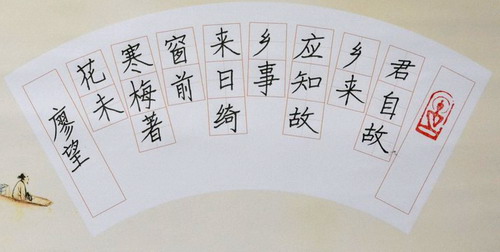 君自故
乡来
应知故
乡事
来日绮
窗前
寒梅著
花未
廖望